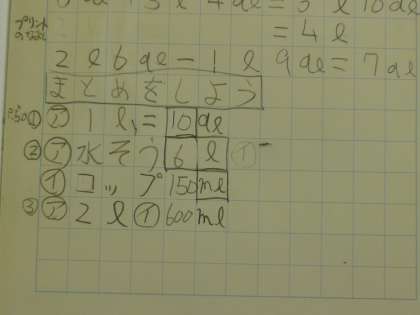 + 3 l 4 dl = 3 l 10 dl
プリント
= 4 l
2 l 6 dl − 1 l 9 dl = 7 dl
まとめをしよう
P.50 ① ㋐ 1 l = 10 dl
② ㋐ 水そう 6 l
㋑ コップ 150 ml
③ ㋐ 2 l ㋑ 600 ml